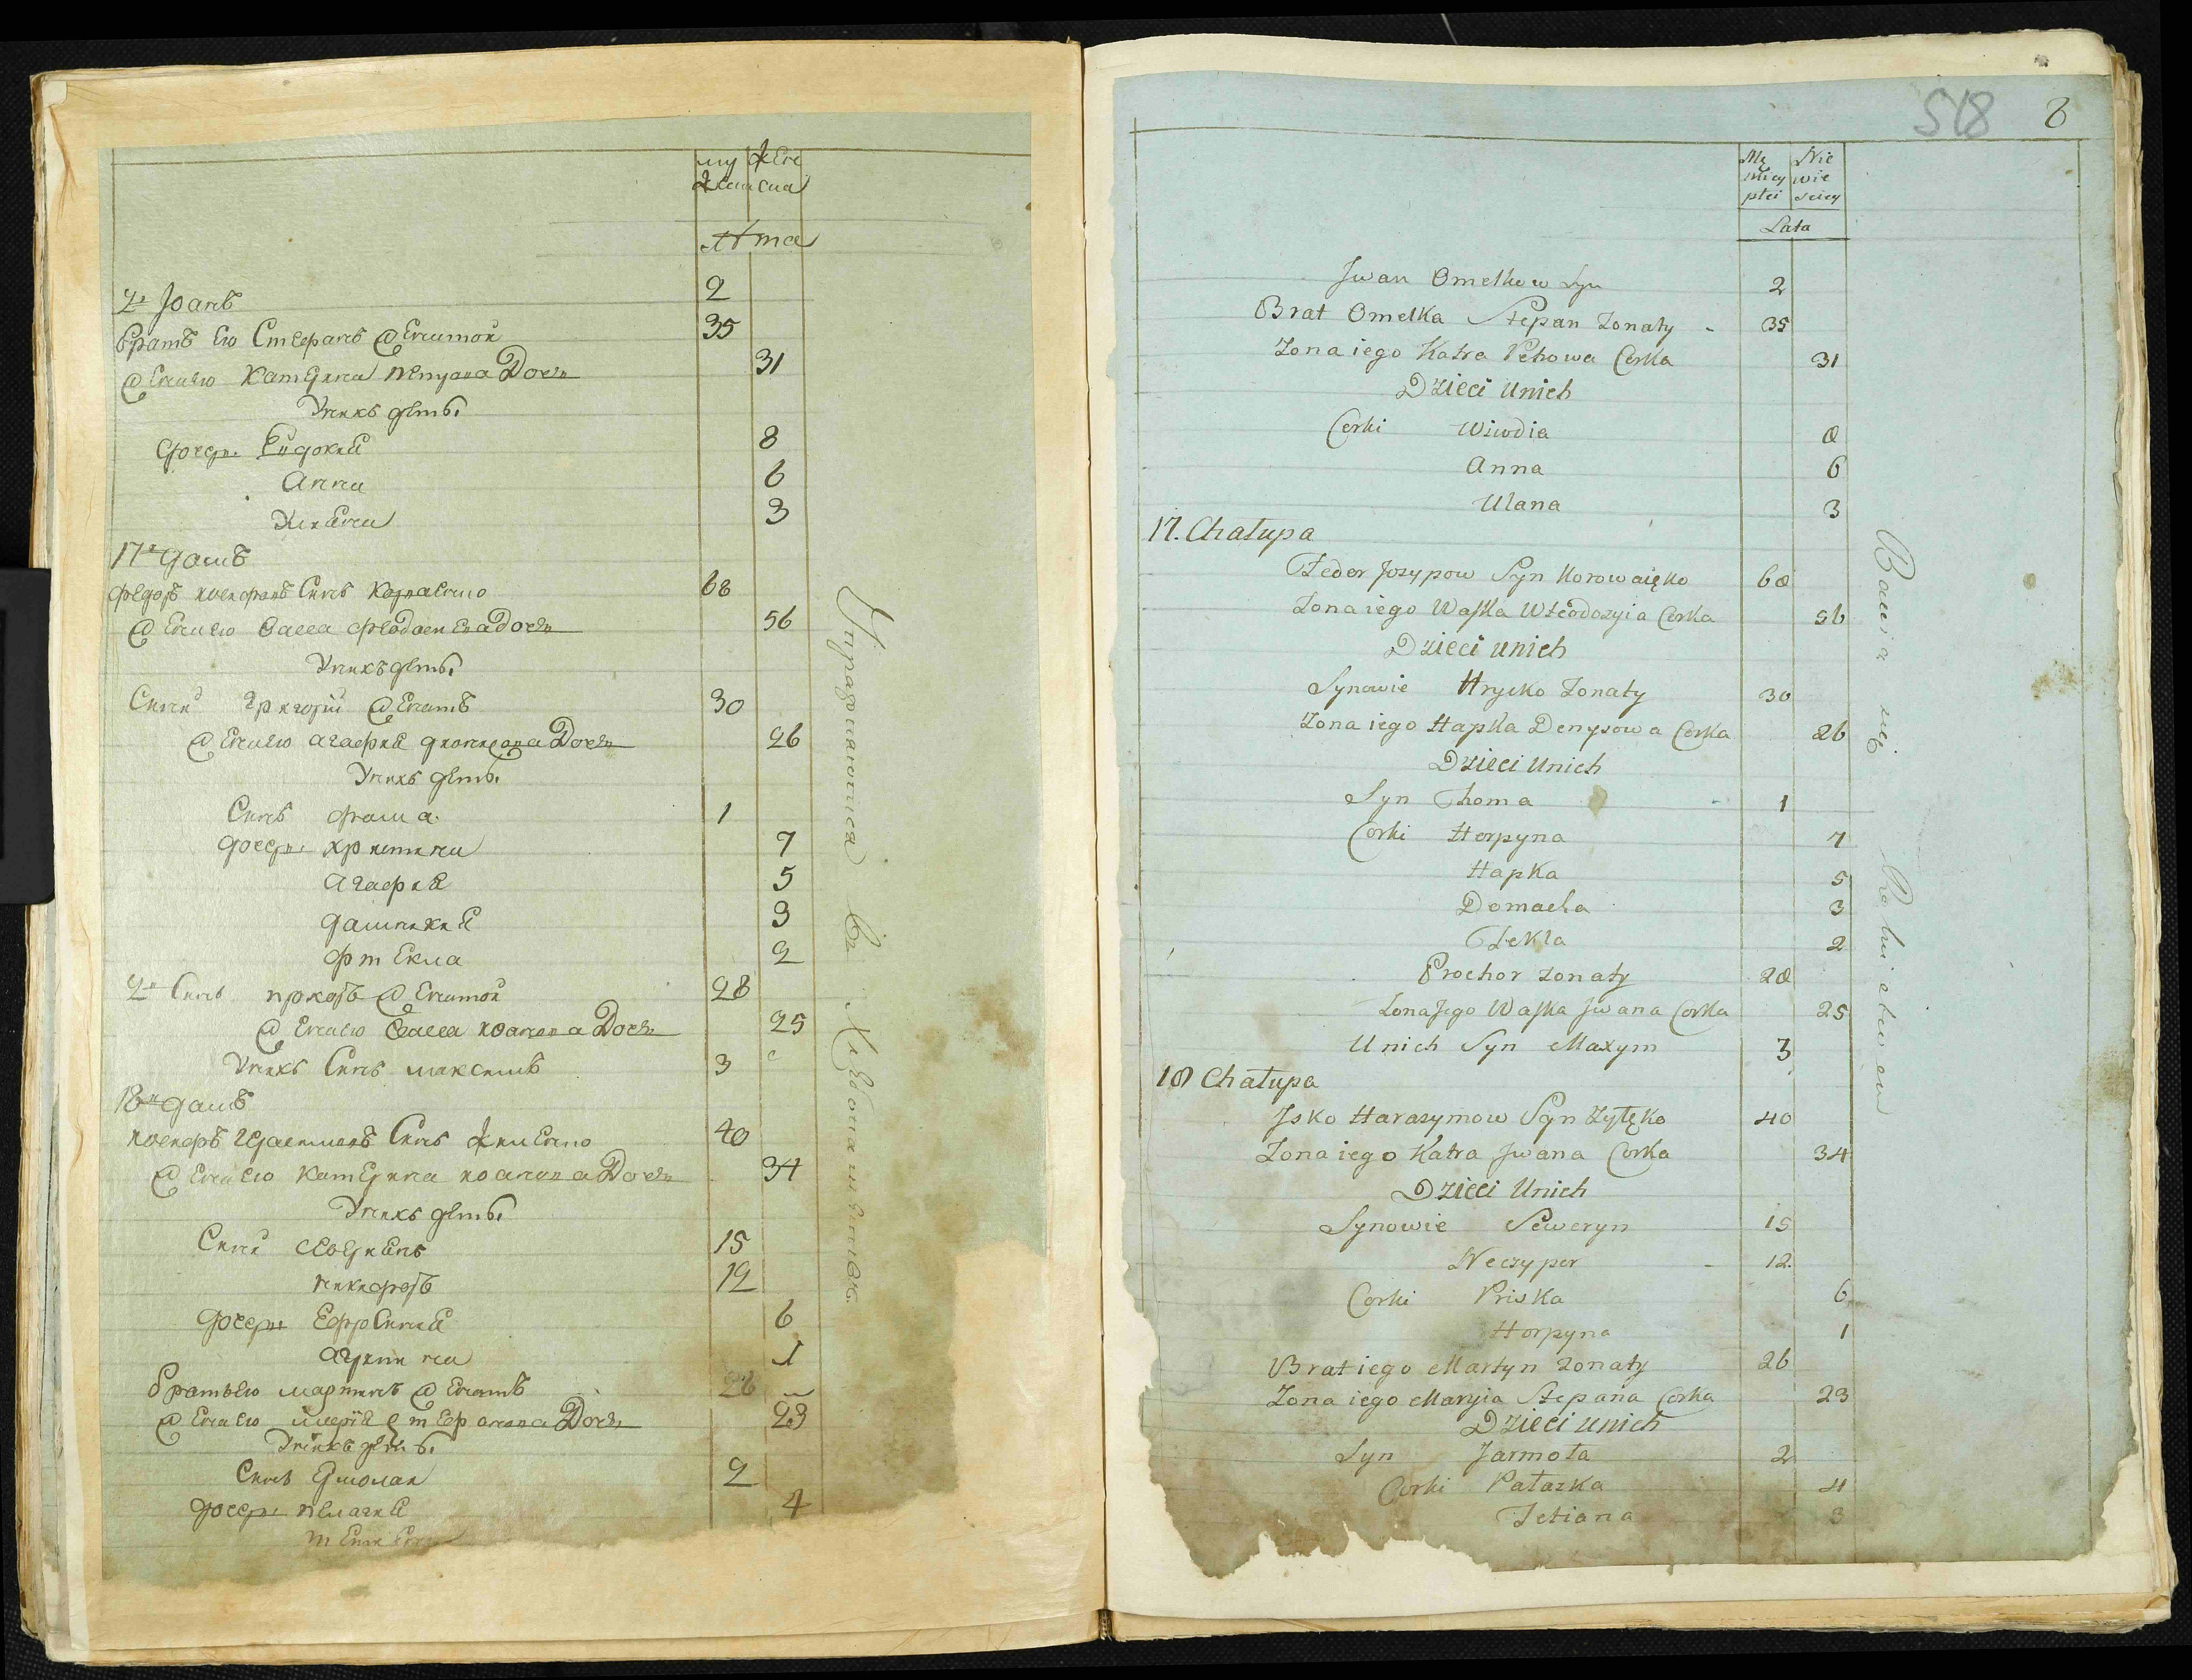 му жен
жеск ска
Лѣта
2й Іоанъ 2
братъ его Стефанъ женатой 35
жена его Катерина Петрова Дочь 31
У нихъ дѣти
дочери Евдокия 8
Анна 6
Улиана 3
17й домъ
Федоръ иосифовъ Синъ 68
жена его Васса Феодосиева Дочь 56
У нихъ дѣти
Сини григорий женатъ 30
жена его агафия дионисова Дочь 26
У нихъ дѣти
Синъ фома 1
дочери христина 7
агафия 5
домникия 3
фтекла 2
2й Синъ прохоръ женатой 28
жена его Васса иоанова Дочь 25
У нихъ Синъ максимъ 3
18й домъ
иосифъ герасимовъ Синъ 40
жена его катерина иоанова Дочь 34
У нихъ дѣти
Сини севериянъ 15
никифоръ 12
дочери Ефросиния 6
агрипина 1
братъ его мартинъ женатъ 26
жена его мария стефанова Дочь 23
У нихъ дѣти
Синъ Ермолай 2
дочери пелагия 4
Упражняются въ Хлебопашествѣ
518 8
Mę Nie
skiey wie
płci sciey
Lata
Jwan Omelkow Syn 2
Brat Omelka Stepan żonaty - 35
Zona iego Katra Petrowa Corka 31
Dzieci Unich
Corki Wiwdia 8
Anna 6
Ulana 3
17. Chałupa
Feder Jozypow Syn Korowaięko 68
Zona iego Waska Wteodozyia Corka 56
Dzieci unich
Synowie Hrycko żonaty 30
Zona iego Hapka Denysowa Corka 26
Dzieci Unich
Syn Thoma - 1
Corki Horpyna 7
Hapka 5
Domacha 3
Tekla 2
Prochor żonaty 28
Zona Jego Waska Jwana Corka 25
Unich Syn Maxym 3
18 Chałupa
Jsko Harasymow Syn Zytęko 40
Zona iego Katra Jwana Corka 34
Dzieci Unich
Synowie Seweryn 15
Neczypor - 12.
Corki Priska 6
Horpyna 1
Brat iego Martyn żonaty 26
Zona iego Maryia Stepana Corka 23
Dzieci unich
Syn Jarmoła 2
Corki Pałazka 4
Tetiana 3
Bawia się Rolnictwem